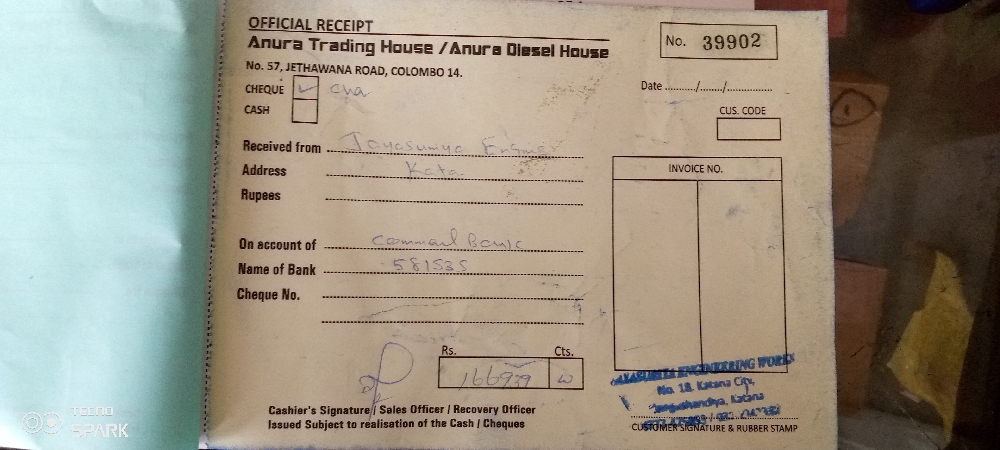 OFFICIAL RECEIPT
Anura Trading House / Anura Diesel House
No. 57, JETHAWANA ROAD, COLOMBO 14.
No. 39902
Date ........../......../................
CHEQUE
CASH
CUS. CODE
Received from Jayasuriya
Address Kata
Rupees
INVOICE NO.
On account of
Name of Bank 581535
Cheque No.
Rs. Cts.
166939
ENGINEERING WORKS
No. 18, Katana City,
Katana
Cashier's Signature / Sales Officer / Recovery Officer
Issued Subject to realisation of the Cash / Cheques
CUSTOMER SIGNATURE & RUBBER STAMP
TECNO
SPARK